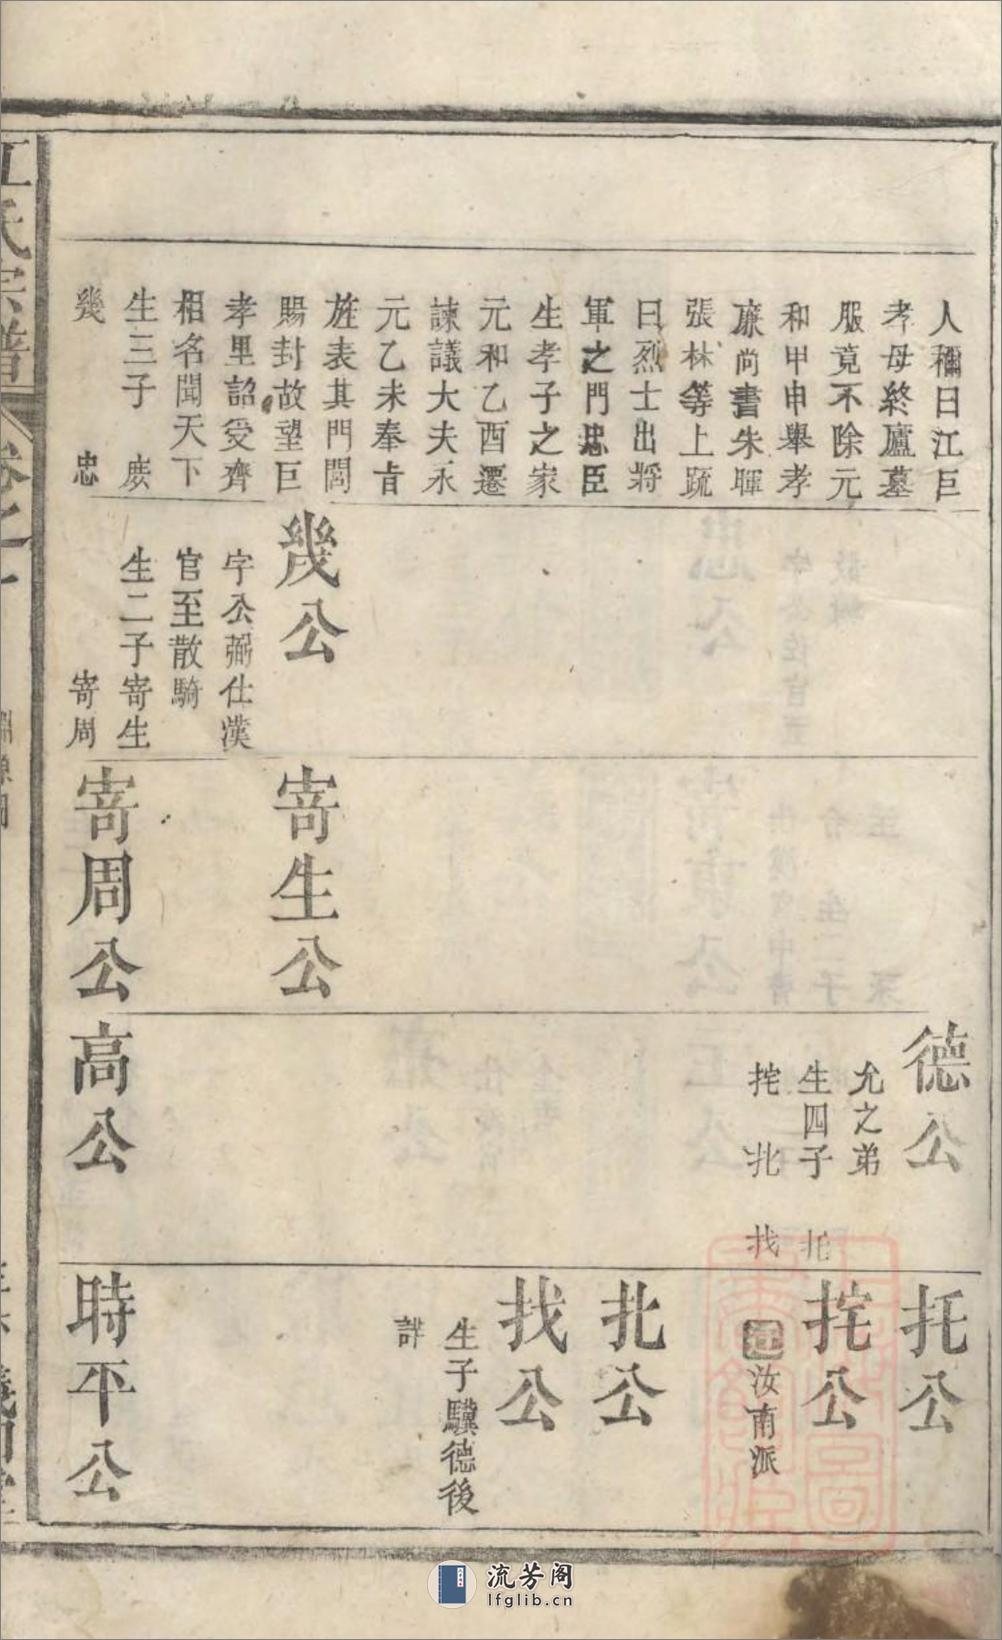 人稱曰江巨
孝母終廬墓
服竟不除元
和甲申舉孝
廉尚書朱暉
張林等上疏
曰烈士出將
軍之門忠臣
生孝子之家
元和乙酉遷
諫議大夫永
元乙未奉旨
旌表其門閭
賜封故望巨
孝里詔受齊
相名聞天下
生三子 庻
㡬 忠
㡬公
字公弼仕漢
官至散騎
生二子寄生
寄周
寄生公
寄周公
德公
允之弟
生四子
挓 批 找
高公
托公
挓公
汝南派
批公
找公
生子驥德後
詳
時平公
江氏宗譜
卷之一
流芳阁
lfglib.cn